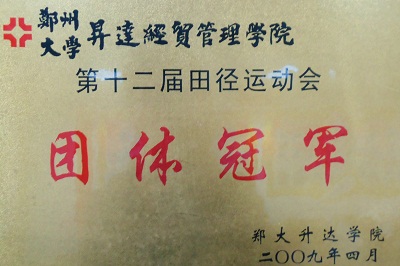 鄭州大學昇達經貿管理學院
第十二届田径运动会
团体冠军
郑大升达学院
二〇〇九年四月